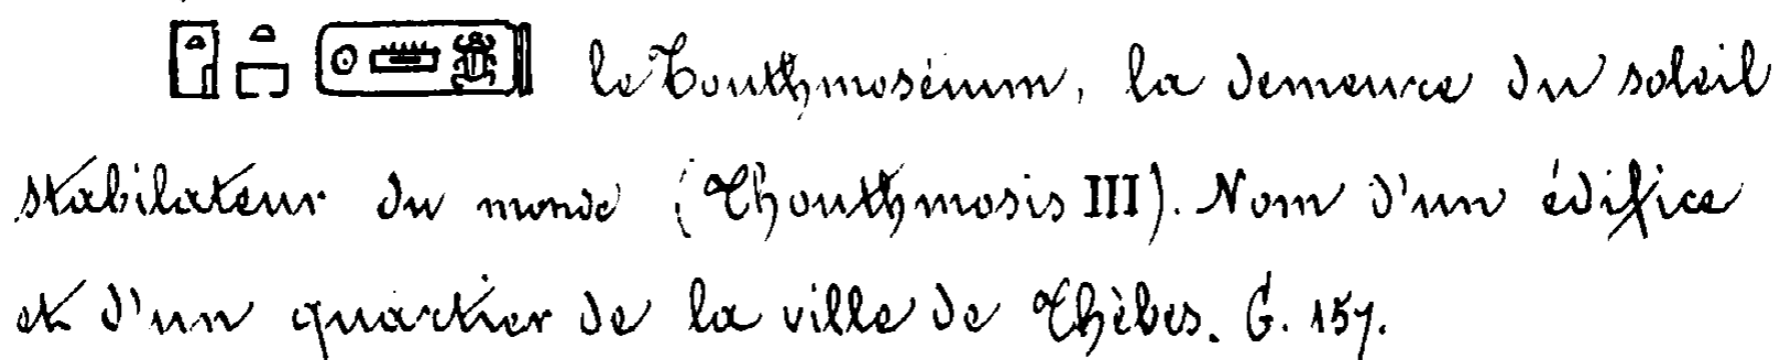 𓉗𓏏𓉐𓍹𓇳𓏠𓆣𓍺 le Touthmoséum, la demeure du soleil
stabilateur du monde (Thouthmosis III). Nom d'un édifice
et d'un quartier de la ville de Thèbes. G. 157.